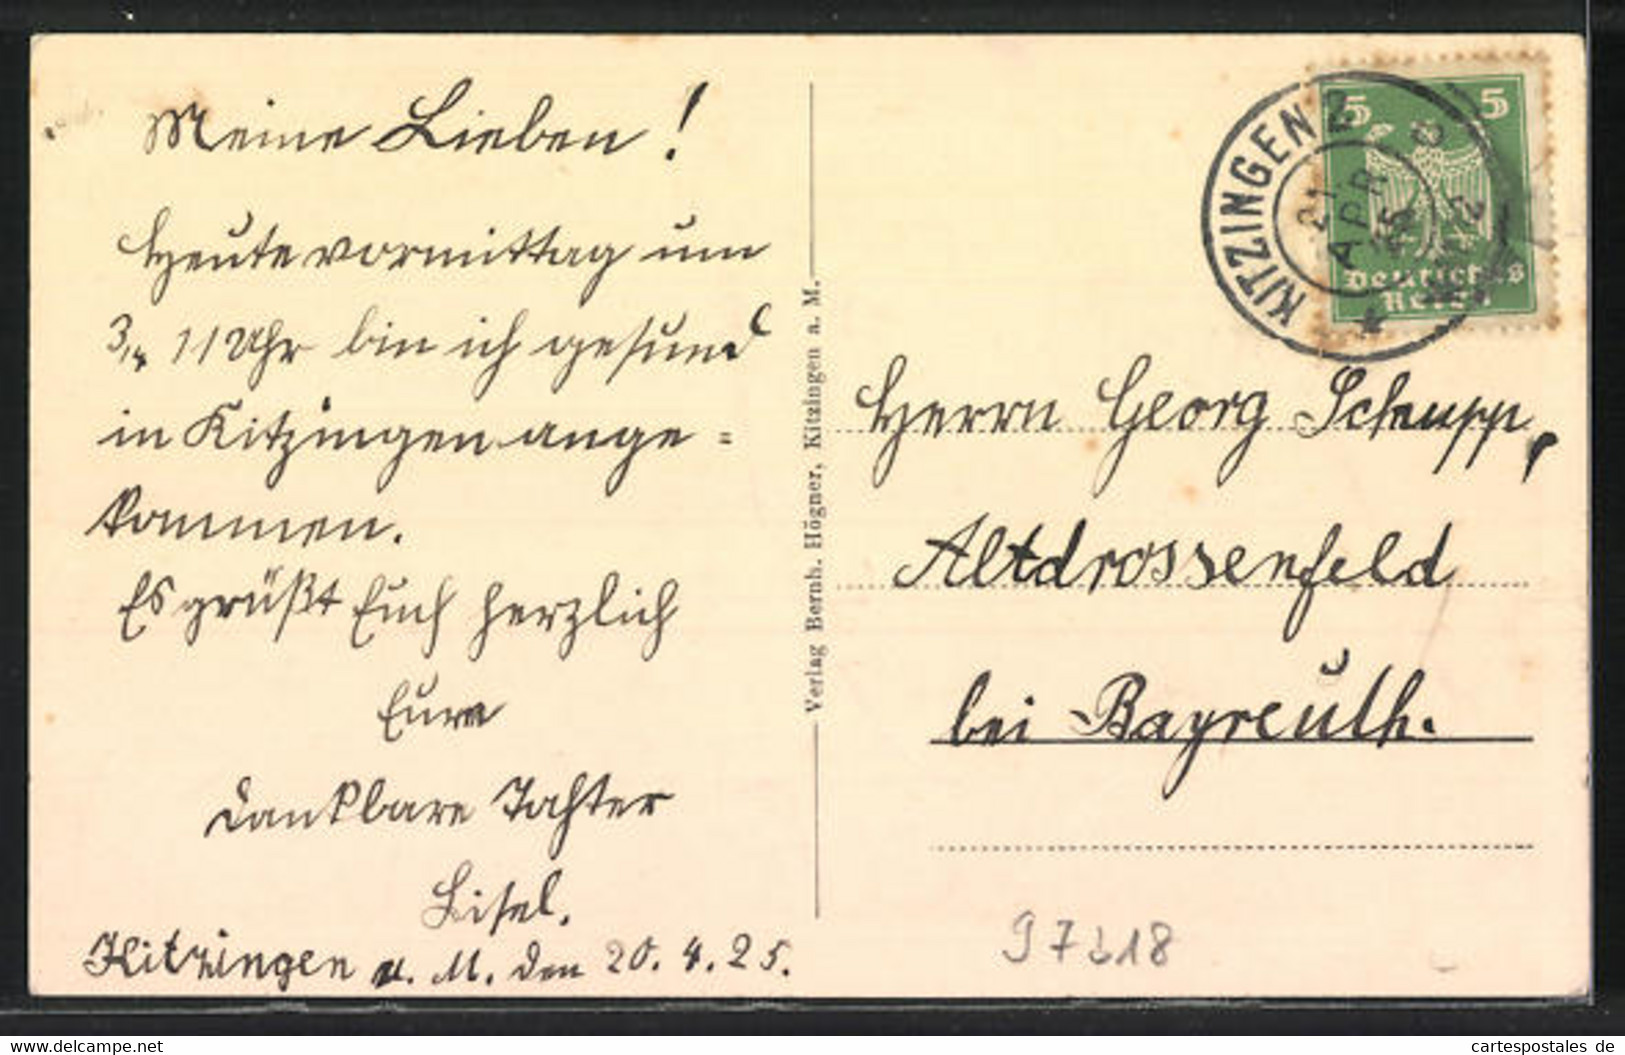 Meine Lieben!
Heute vormittag um
3/4 11 Uhr bin ich gesund
in Kitzingen ange=
kommen.
Es grüßt Euch herzlich
Eure
dankbare Tochter
Lisel.
Kitzingen a. M. den 20. 4. 25.
Verlag Bernh. Högner, Kitzingen a. M.
KITZINGEN 2
21
APR
25
5 5
Deutsches
Reich
Herrn Georg Schupp,
Altdrossenfeld
bei Bayreuth.
97318
cartespostales de
www.delcampe.net